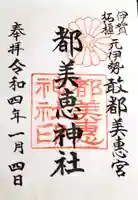 伊賀
柘植
元伊勢敢都美恵宮
都美恵神社
都美恵
神社印
奉拝 令和四年一月四日